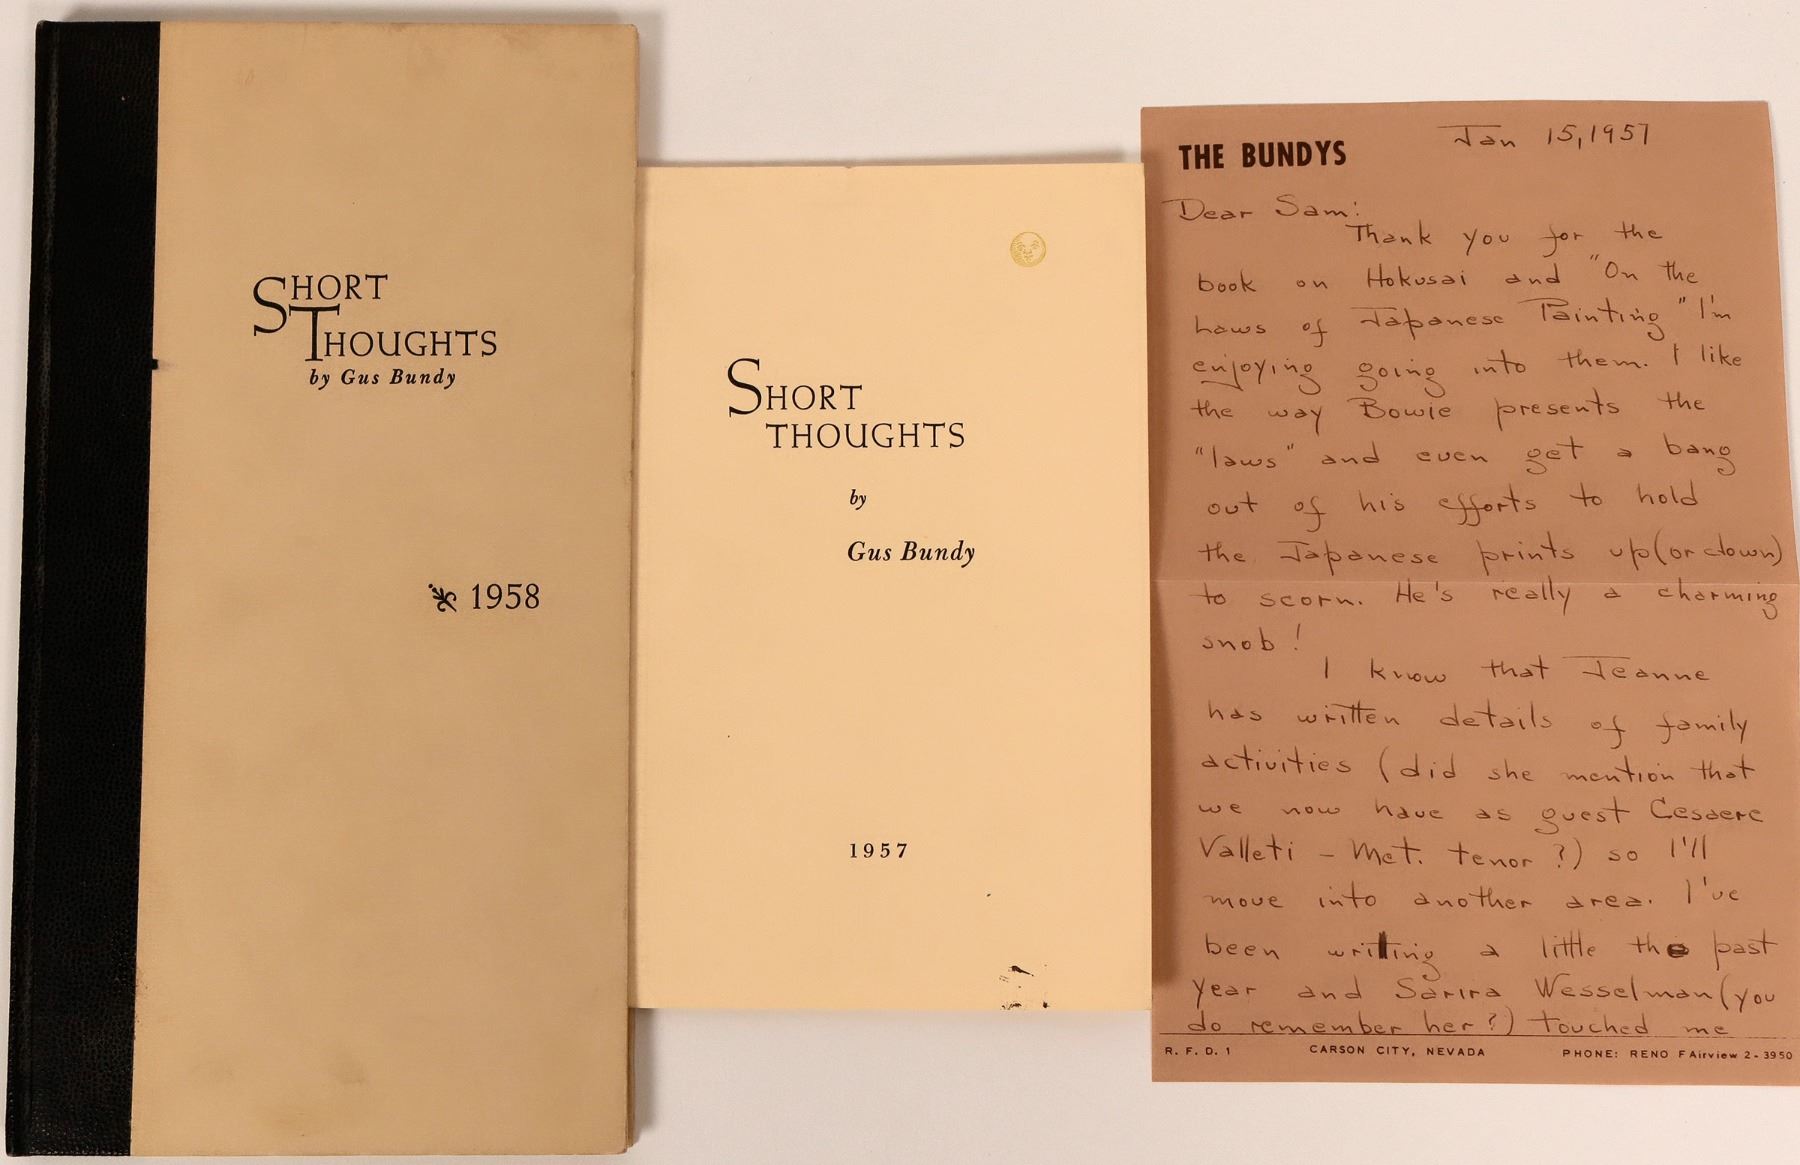 SHORT
THOUGHTS
by Gus Bundy
1958
SHORT
THOUGHTS
by
Gus Bundy
1957
THE BUNDYS
Jan 15, 1957
Dear Sam:
Thank you for the
book on Hokusai and "On the
Laws of Japanese Painting" I'm
enjoying going into them. I like
the way Bowie presents the
"laws" and even get a bang
out of his efforts to hold
the Japanese prints up (or down)
to scorn. He's really a charming
snob!
I know that Jeanne
has written details of family
activities (did she mention that
we now have as guest Cesaere
Valleti - Met. tenor?) so I'll
move into another area. I've
been writing a little the past
year and Sarira Wesselman (you
do remember her?) touched me
R. F. D. 1
CARSON CITY, NEVADA
PHONE: RENO FAirview 2-3950